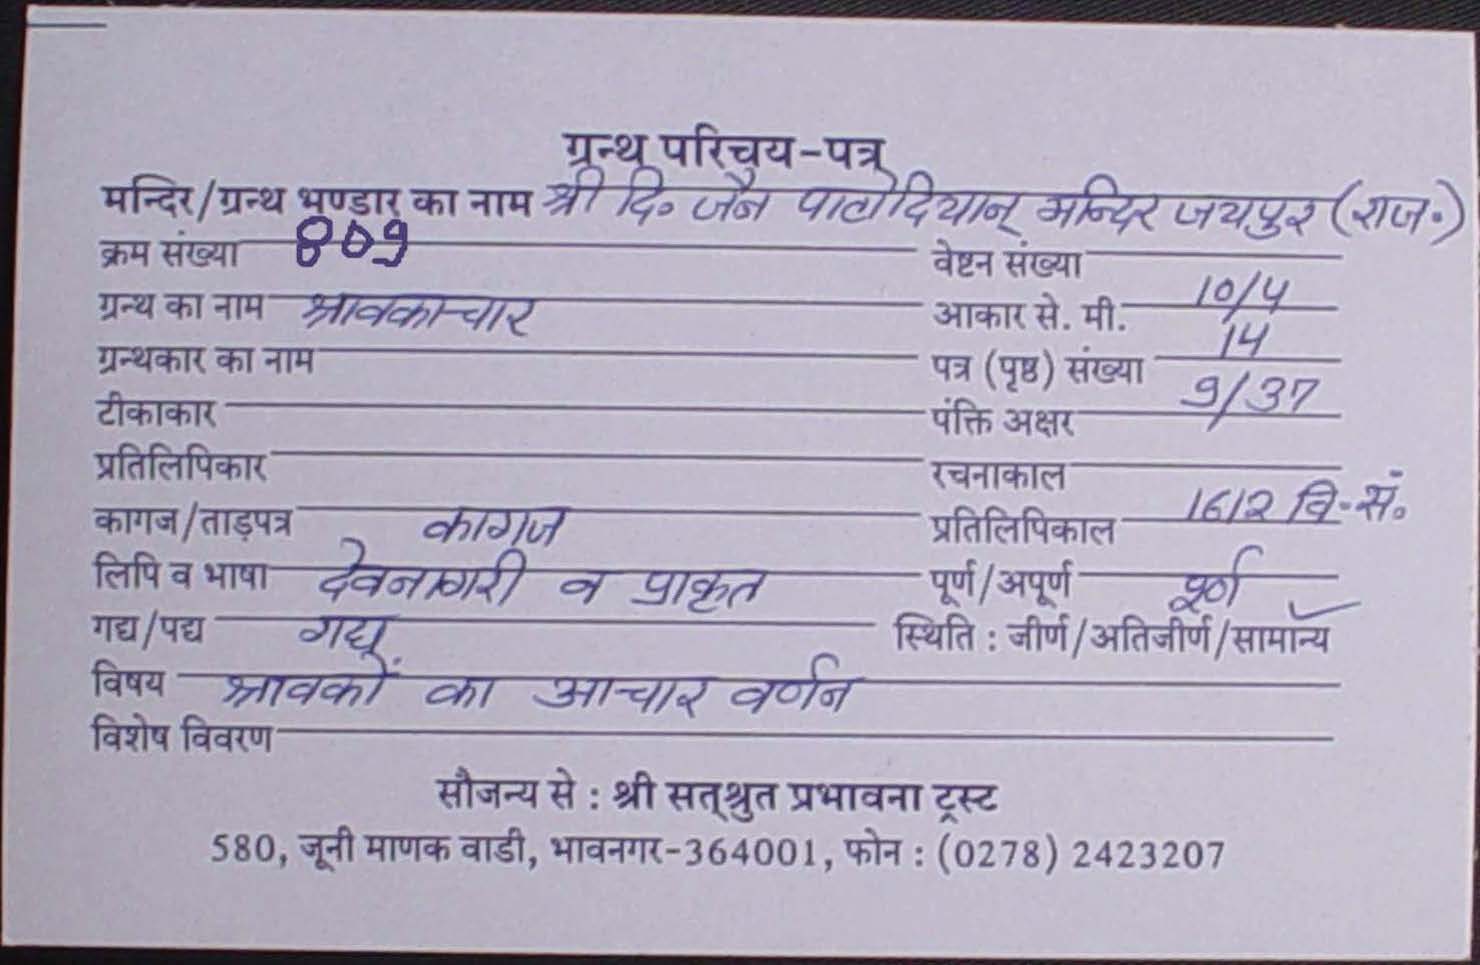 ग्रन्थ परिचय-पत्र
मन्दिर/ग्रन्थ भण्डार का नाम श्री दि० जैन पाटोदियान् मन्दिर जयपुर (राज॰)
क्रम संख्या 809 वेष्टन संख्या
ग्रन्थ का नाम श्रावकाचार आकार से. मी. 10/4
ग्रन्थकार का नाम पत्र (पृष्ठ) संख्या 14
टीकाकार पंक्ति अक्षर 9/37
प्रतिलिपिकार रचनाकाल
कागज/ताड़पत्र कागज प्रतिलिपिकाल 1612 वि॰सं॰
लिपि व भाषा देवनागरी व प्राकृत पूर्ण/अपूर्ण पूर्ण
गद्य/पद्य गद्य स्थिति : जीर्ण/अतिजीर्ण/सामान्य
विषय श्रावकों का आचार वर्णन
विशेष विवरण
सौजन्य से : श्री सत्श्रुत प्रभावना ट्रस्ट
580, जूनी माणक वाडी, भावनगर-364001, फोन : (0278) 2423207